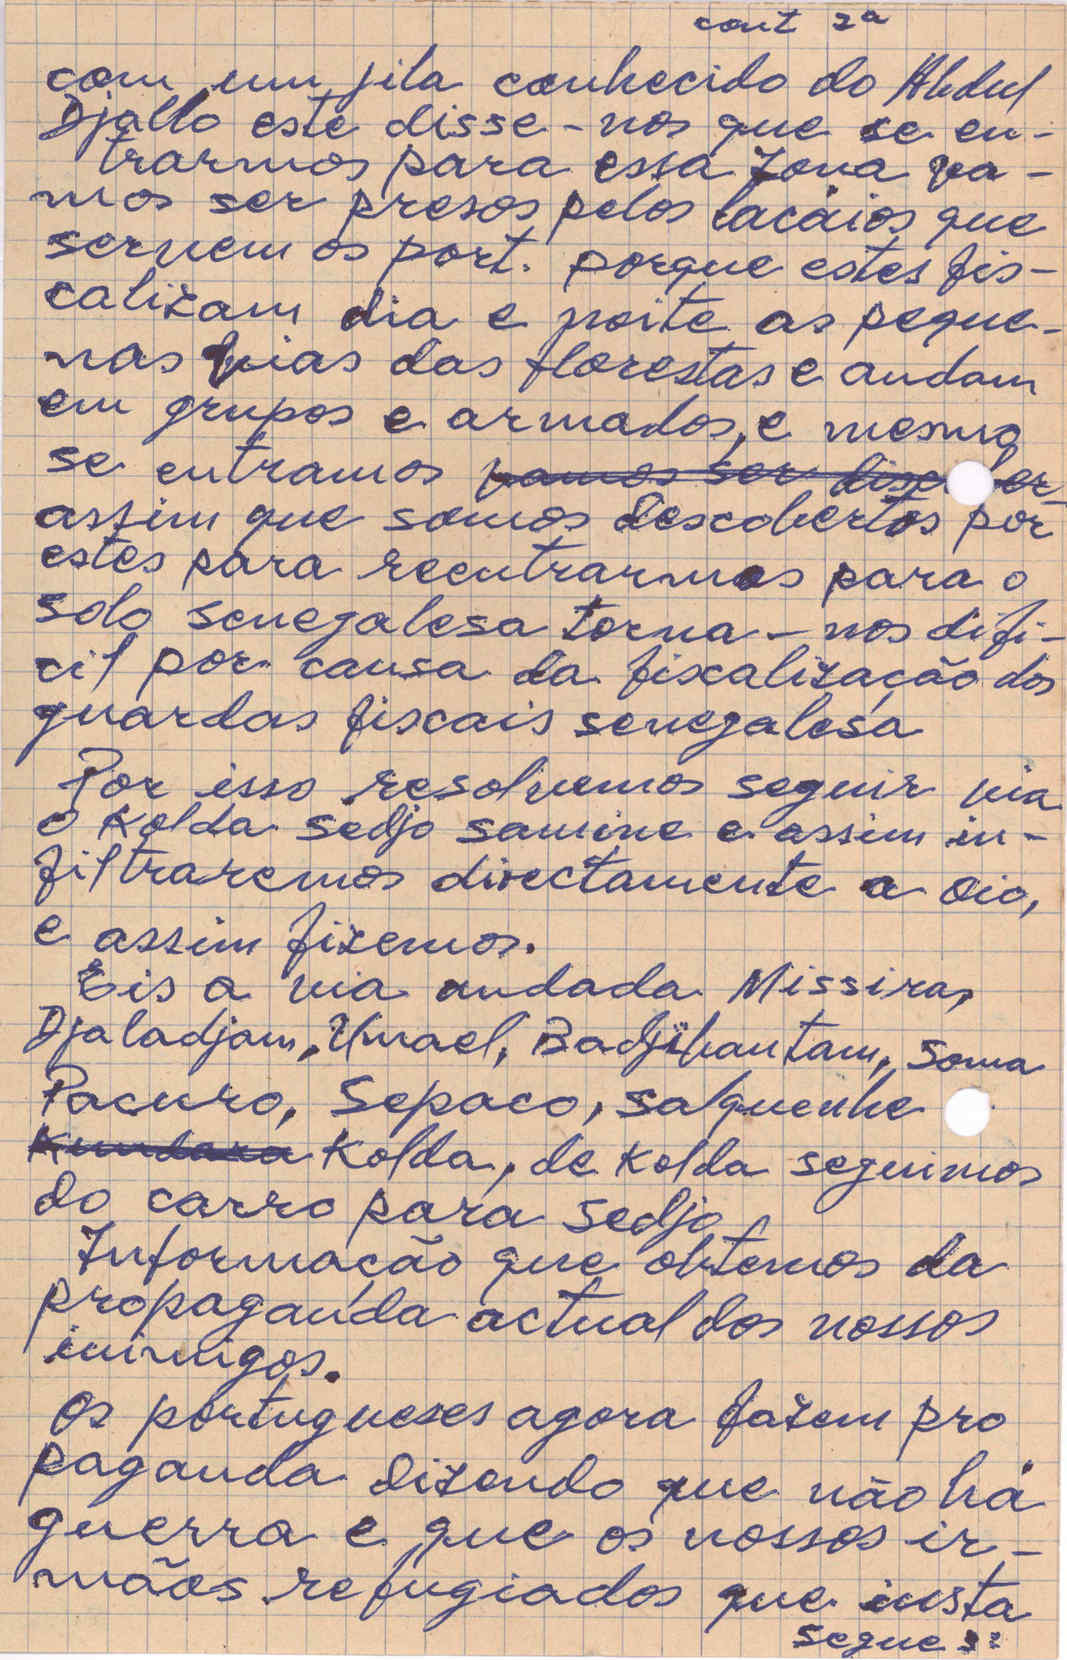 cont 2ª
com um jila conhecido do Abdul
Djallo este disse-nos que se en-
trarmos para essa zona va-
mos ser presos pelos lacáios que
servem os port. porque estes fis-
calizam dia e noite as peque-
nas vias das florestas e andam
em grupos e armados, e mesmo
se entramos vamos ser discober-
assim que somos descobertos por
estes para reentrarmos para o
solo senegalesa torna-nos difi-
cil por causa da fiscalização dos
guardas fiscais senegalesa
Por isso resolvemos seguir via
o Kolda sedjo samine e assim in-
filtraremos directamente a Oio,
e assim fizemos.
Eis a via andada Missira,
Djaladjam, Umael, Soma
Pacuro, Sepaco, salquenhe
Kundara Kolda, de Kolda seguimos
do carro para sedjo
Informação que obtemos da
propaganda actual dos nossos
inimigos.
Os portugueses agora fazem pro
paganda dizendo que não há
guerra e que os nossos ir-
mãos refugiados que insta
segue 3: